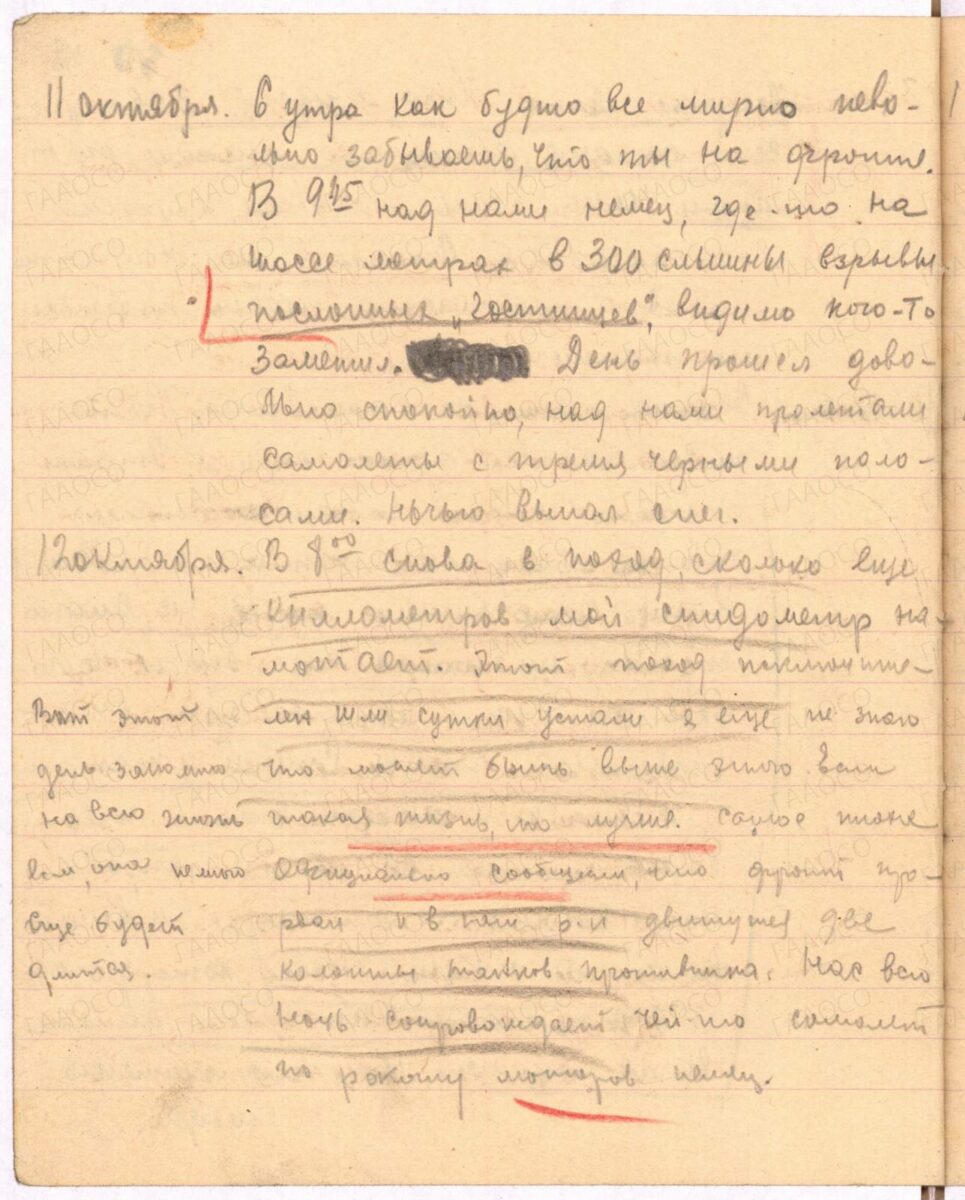 11 октября. 6 утра как будто все мирно нево-
льно забываешь, что ты на фронте.
В 9 45 над нами немец, где-то на
шоссе метрах в 300 слышны взрывы
посланных „Гостинцев", видимо кого-то
Заметил. День прошел дово-
льно спокойно, над нами пролетали
самолеты с тремя черными поло-
сами. Ночью выпал снег.
12 октября. В 8 00 снова в поход, сколько еще
Километров мой спидометр на-
мотает. Этот поход исключите-
лен шли сутки устали я еще не знаю
что может быть выше этого. Если
такая жизнь, то лучше. Самое
Официально сообщили, что фронт про-
рван и в наш р-н движутся две
колонны танков противника. Нас всю
ночь сопровождает чей-то самолет
по рокоту моторов немец.
Вот этот
день запомню
на всю жизнь
если, она немного
еще будет
длится.
ГААОСО